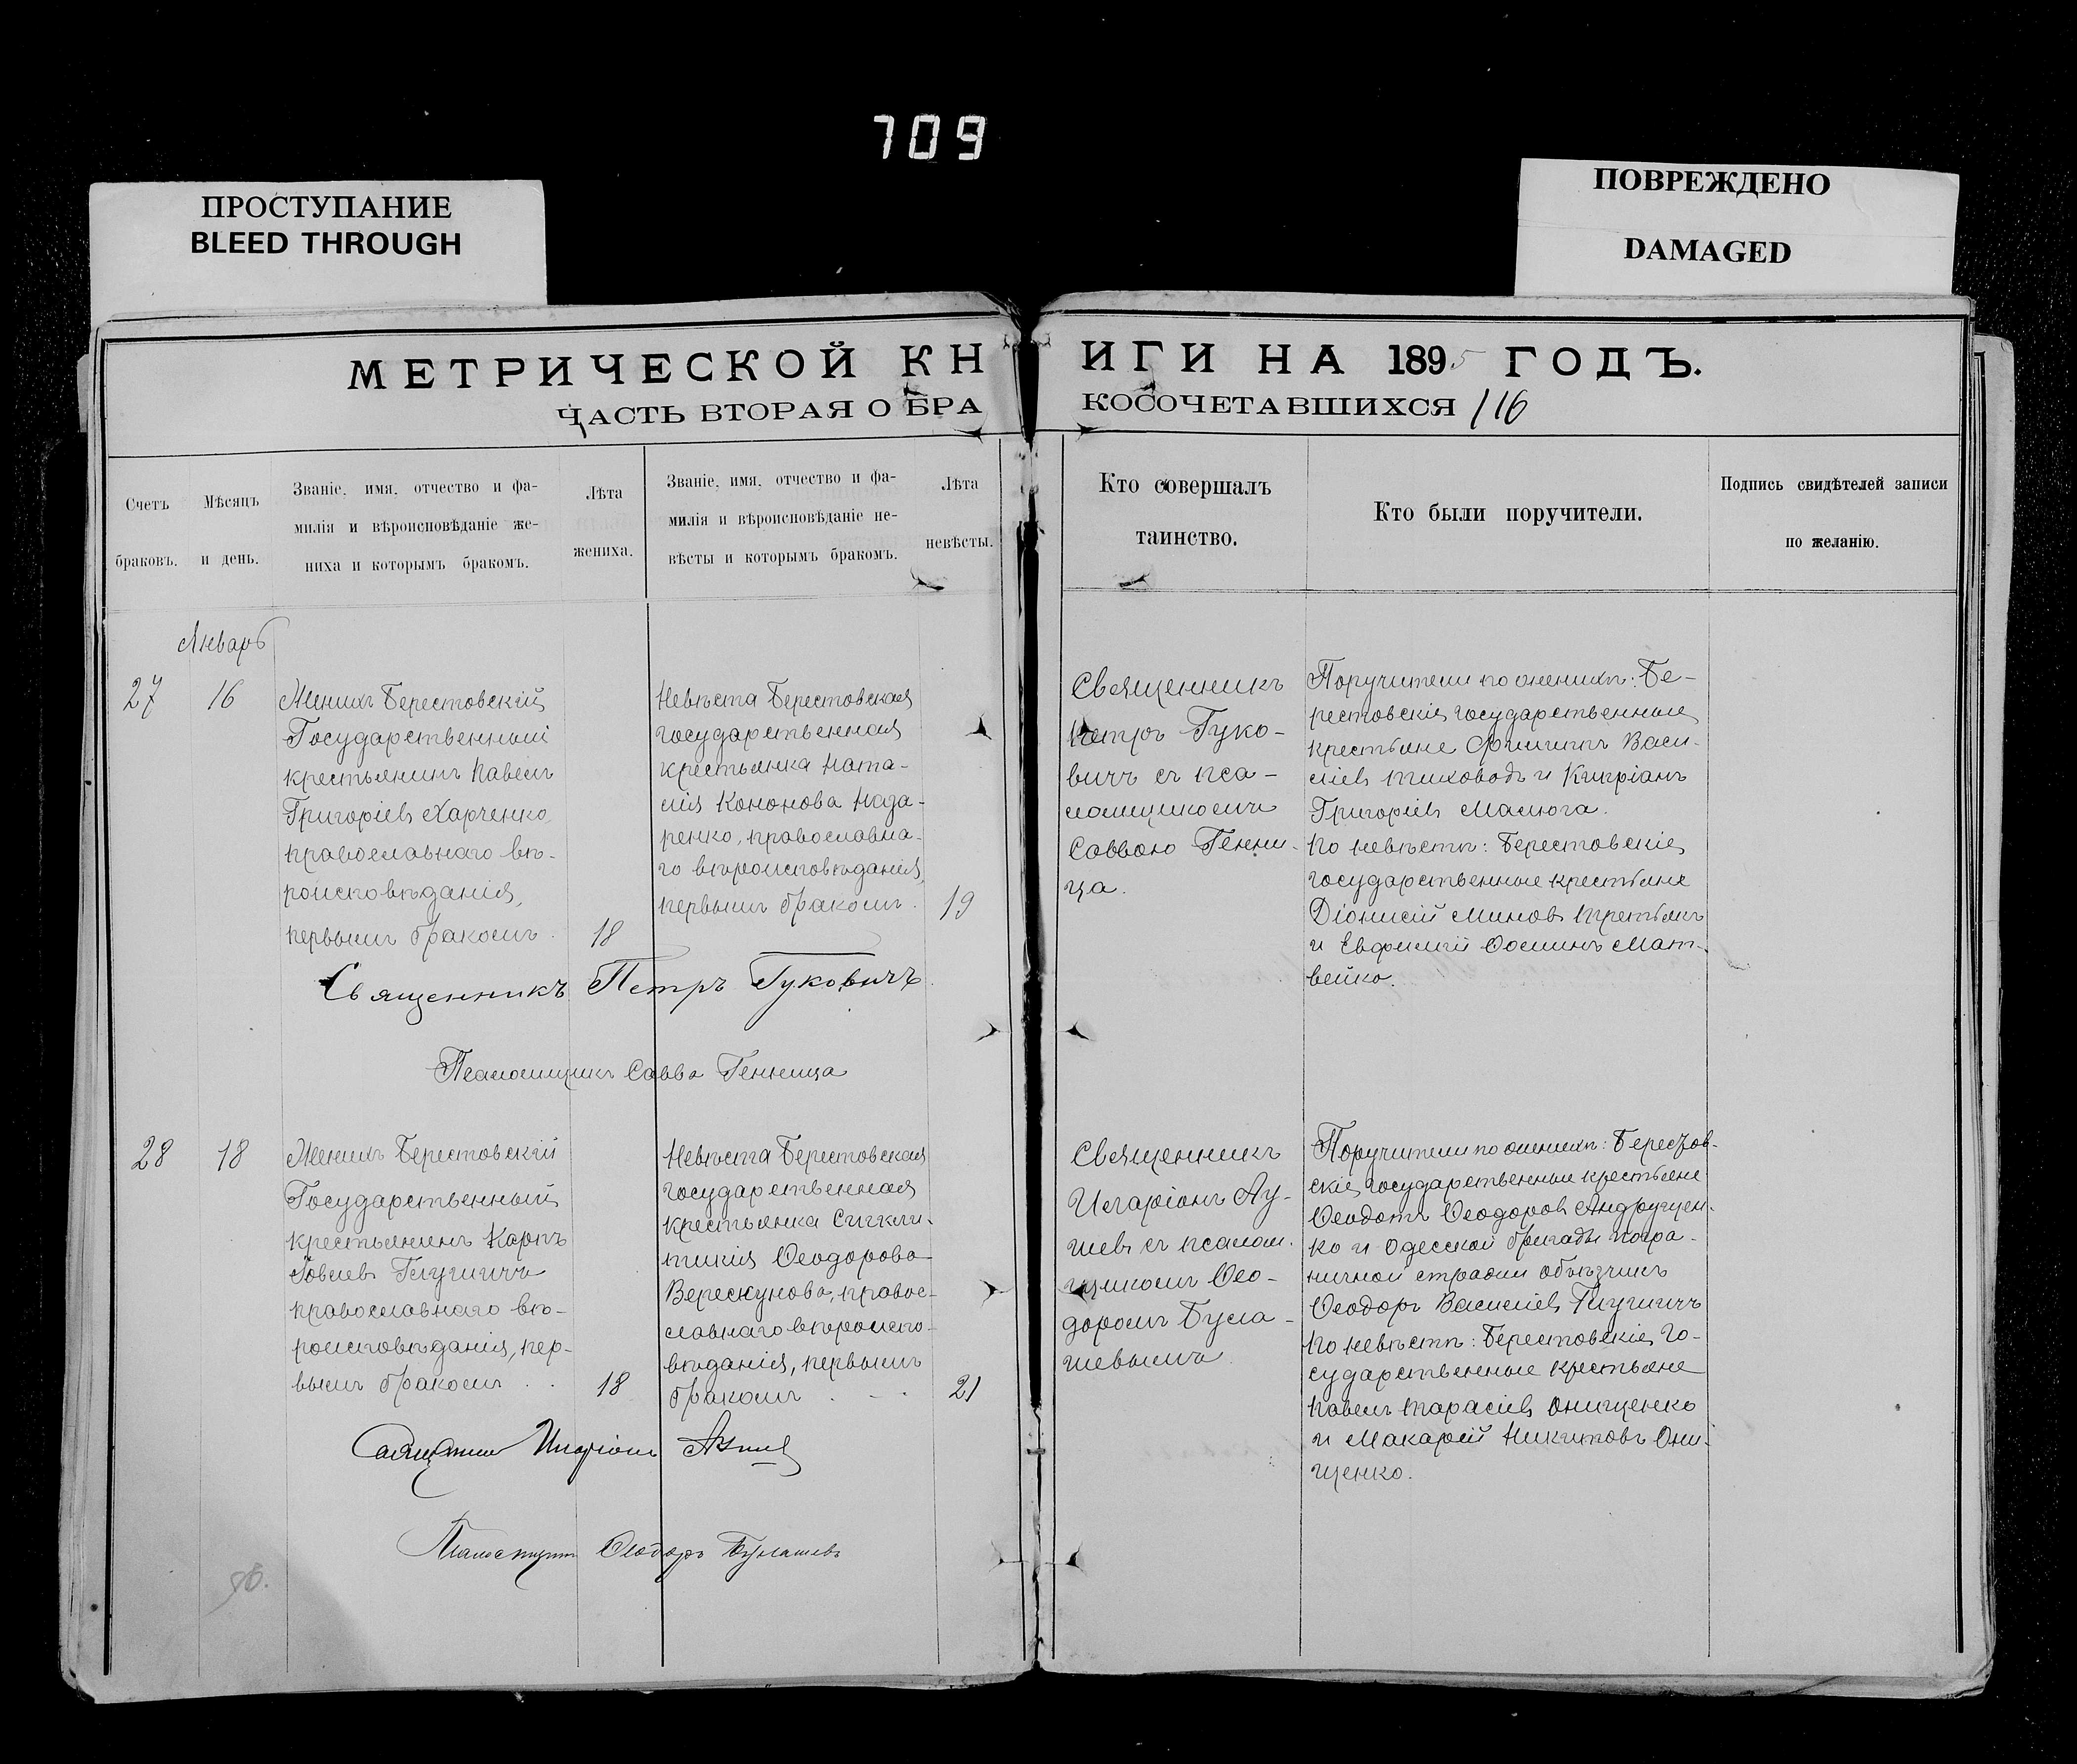 709
ПРОСТУПАНИЕ
BLEED THROUGH
ПОВРЕЖДЕНО
DAMAGED
МЕТРИЧЕСКОЙ КНИГИ НА 1895 ГОДЪ.
ЧАСТЬ ВТОРАЯ О БРАКОСОЧЕТАВШИХСЯ 116
Счетъ
браковъ.
Мѣсяцъ
и день.
Званіе, имя, отчество и фа-
милія и вѣроисповѣданіе же-
ниха и которымъ бракомъ.
Лѣта
жениха.
Званіе, имя, отчество и фа-
милія и вѣроисповѣданіе не-
вѣсты и которымъ бракомъ.
Лѣта
невѣсты.
Кто совершалъ
таинство.
Кто были поручители.
Подпись свидѣтелей записи
по желанію.
Январь
27
16
Женихъ Берестовскій
Государственный
крестьянинъ Павелъ
Григоріевъ Харченко
православнаго вѣ-
роисповѣданія,
первымъ бракомъ.
18
Невѣста Берестовская
государственная
крестьянка Ната-
лія Кононова Наза-
ренко, православна-
го вѣроисповѣданія,
первымъ бракомъ.
19
Священникъ
Петръ Гуко-
вичъ съ пса-
ломщикомъ
Саввою Генни-
ца.
Поручители по женихѣ: Бе-
рестовскіе государственные
крестьяне Филиппъ Васи-
ліевъ Тиховодъ и Кипріанъ
Григоріевъ Малюга.
По невѣстѣ: Берестовскіе
государственные крестьяне
Діонисій Миновъ Третьякъ
и Евфимій Ѳоминъ Мат-
вейко.
Священникъ Петръ Гуковичъ
Псаломщикъ Савва Генница
28
18
Женихъ Берестовскій
Государственный
крестьянинъ Карпъ
Іовлевъ Глушичъ
православнаго вѣ-
роисповѣданія, пер-
вымъ бракомъ . .
18
Невѣста Берестовская
государственная
крестьянка Сигкли-
тикія Ѳеодорова
Верескунова, правос-
лавнаго вѣроиспо-
вѣданія, первымъ
бракомъ . - .
21
Священникъ
Иларіонъ
съ псалом-
щикомъ Ѳео-
доромъ Була-
шевымъ
Поручители по женихѣ: Берестов-
скіе государственные крестьяне
Ѳеодотъ Ѳеодоровъ Андрущен-
ко и Одесской бригады погра-
ничной стражи объѣзчикъ
Ѳеодоръ Василіевъ Глушичъ
По невѣстѣ: Берестовскіе го-
сударственные крестьяне
Павелъ Тарасіевъ Онищенко
и Макарій Никитовъ Они-
щенко.
Священникъ Иларіонъ
Псаломщикъ Ѳеодоръ Булашевъ